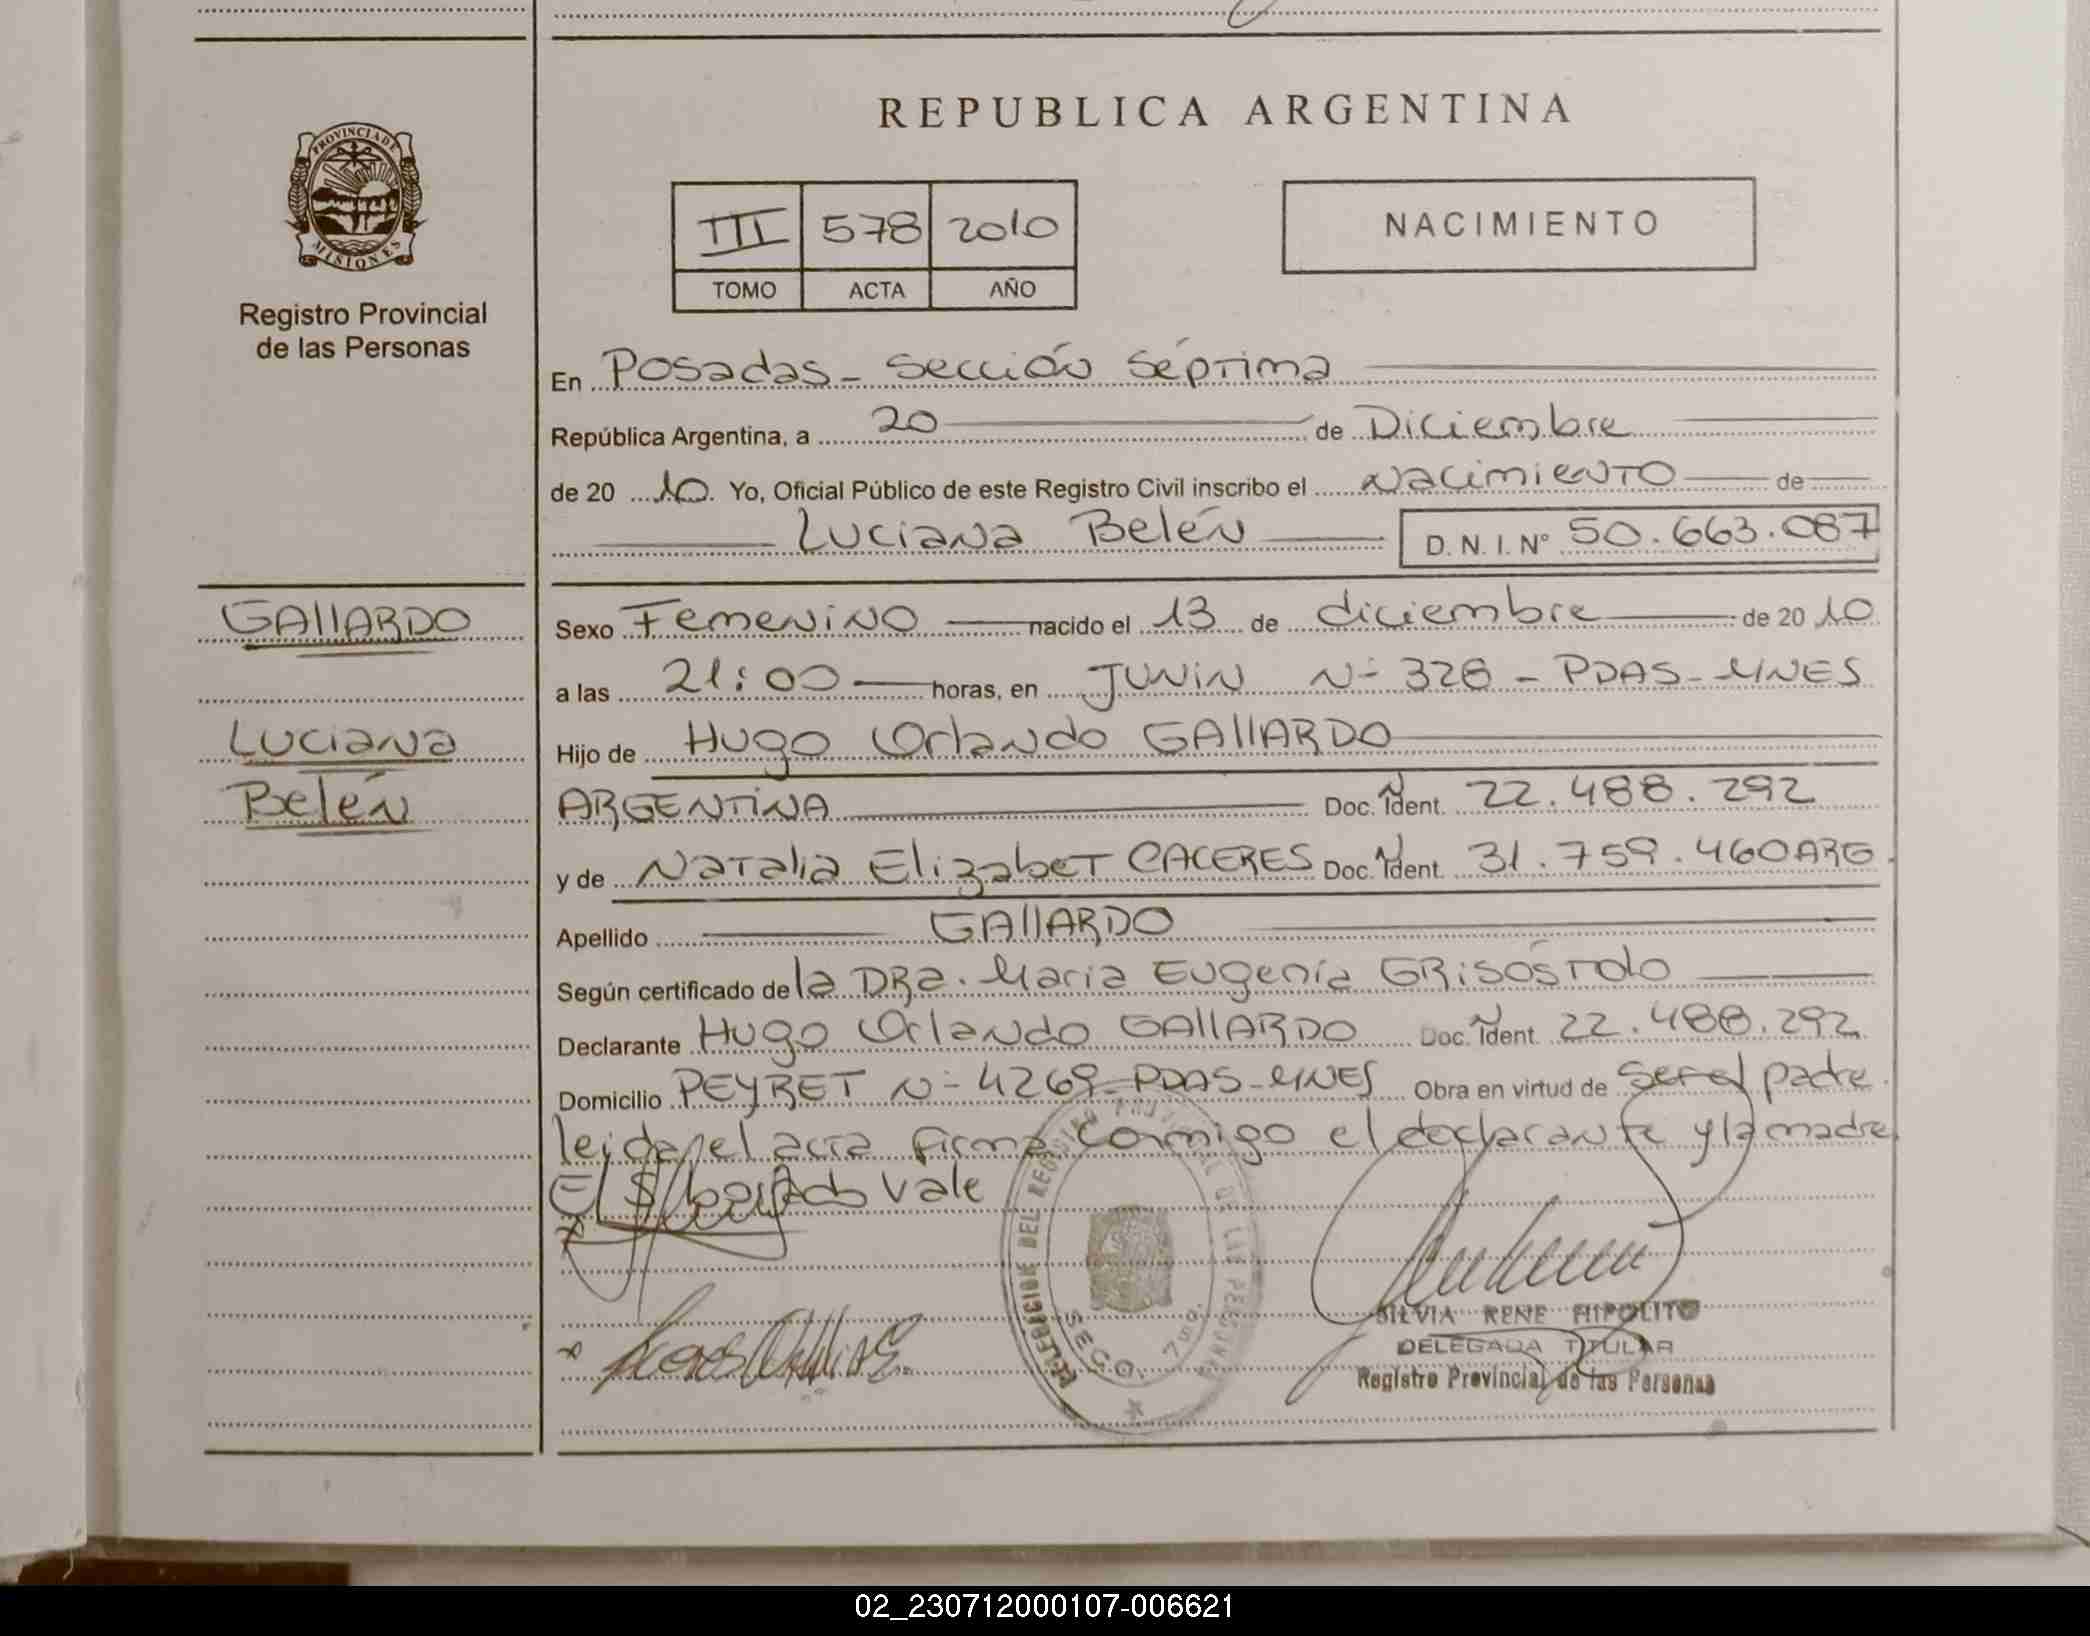 REPUBLICA ARGENTINA
PROVINCIA DE
MISIONES
Registro Provincial
de las Personas
III 578 2010
TOMO ACTA AÑO
NACIMIENTO
En Posadas - Sección Séptima
República Argentina, a 20 de Diciembre
de 20 10 Yo, Oficial Público de este Registro Civil inscribo el Nacimiento de
Luciana Belén D. N. I. N° 50.663.087
GALLARDO
Luciana
Belén
Sexo Femenino nacido el 13 de diciembre de 20 10
a las 21:00 horas, en JUNIN Nº 328 - PDAS - MNES
Hijo de Hugo Orlando GALLARDO
ARGENTINA Doc. Ident. 22.488.292
y de Natalia Elizabet CACERES Doc. Ident. 31.759.460 ARG
Apellido GALLARDO
Según certificado de la DRa. Maria Eugenia GRISÓSTOLO
Declarante Hugo Orlando GALLARDO Doc. Ident. 22.488.292
Domicilio PEYRET Nº 4269 - PDAS - MNES Obra en virtud de ser el padre
leida el acta firma conmigo el declarante y la madre
El S/ borrado Vale
DELEGACION DEL REGISTRO PROVINCIAL DE LAS PERSONAS
SECC. 7
SILVIA RENE HIPOLITO
DELEGADA TITULAR
Registro Provincial de las Personas
02_230712000107-006621